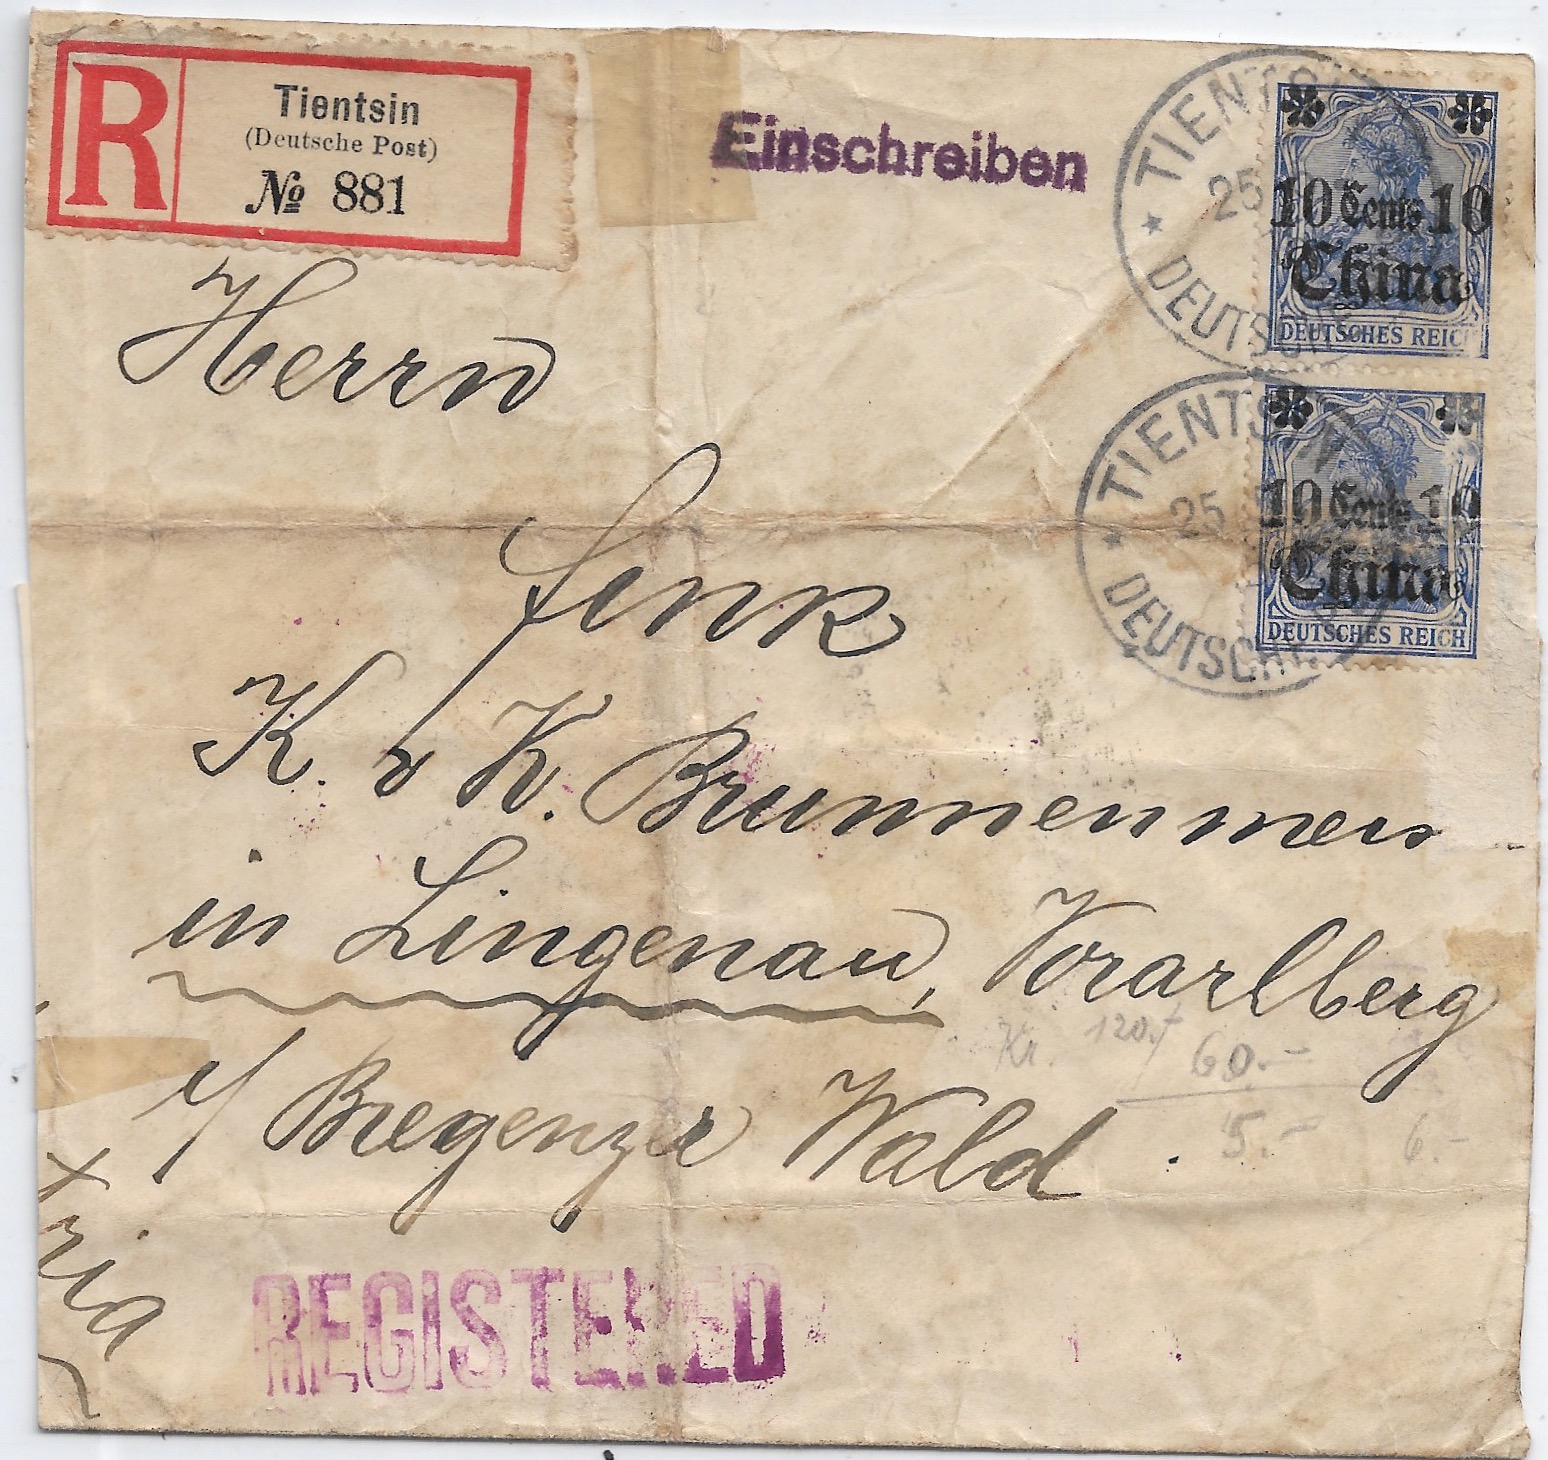 R
Tientsin
(Deutsche Post)
№ 881
Einschreiben
TIENTSIN
25
DEUTSCHE
10 Cents 10
China
DEUTSCHES REICH
TIENTSIN
25
DEUTSCHE
10 Cents 10
China
DEUTSCHES REICH
Herrn
Fink
K. u K. Brunnenmeis
in Lingenau, Vorarlberg
Kr. 120.-
60.-
5.- 6.-
i/ Bregenzer Wald.
tria
REGISTERED